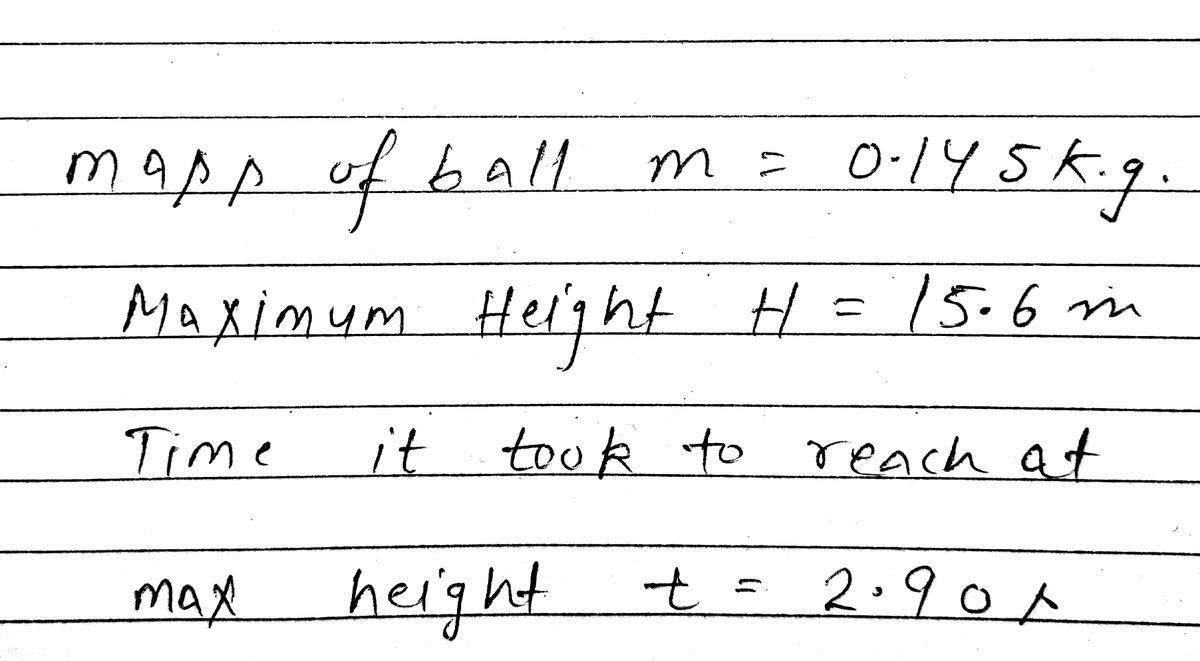 mass of ball m = 0.145 k.g.
Maximum Height H = 15.6 m
Time it took to reach at
max height t = 2.90 s